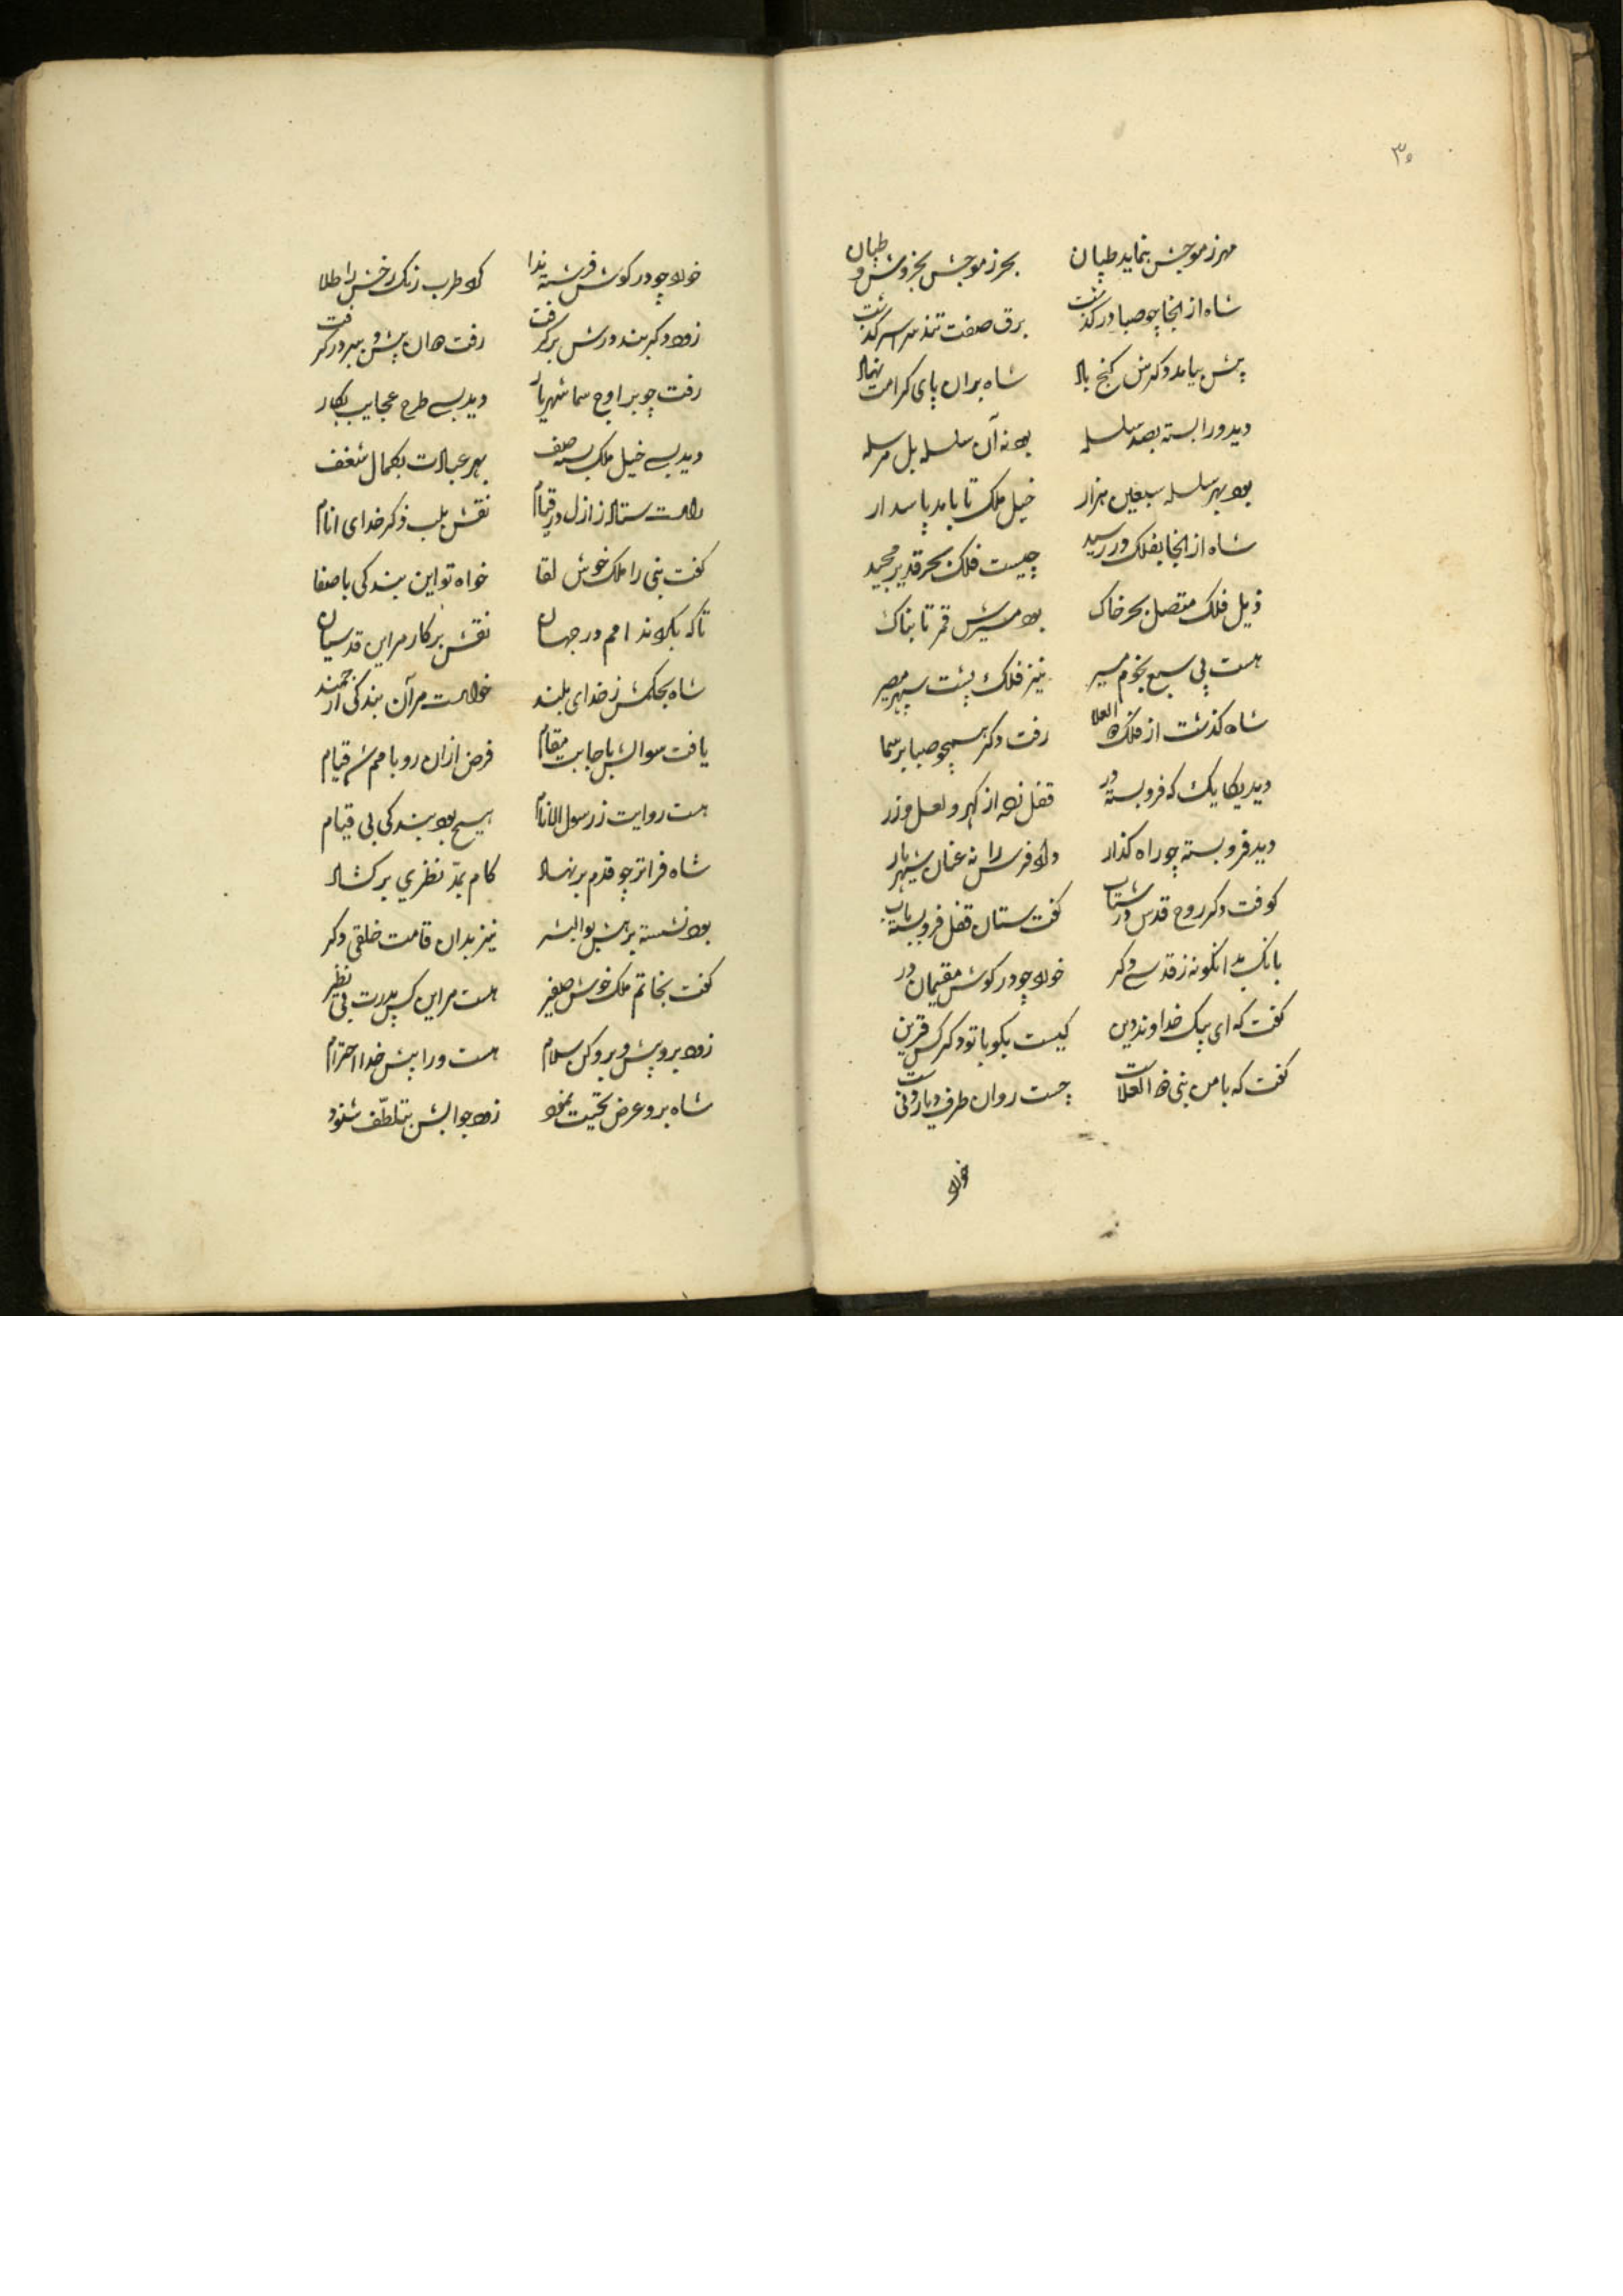 ۳۰
مهر ز موجش بنماید طپان بحر ز موجش بخروش و طپان
شاه از انجا چو صبا در گذشت برق صفت تند سراسر گذشت
پیش بیامد دکرش کنج باد شاه بران پای کرامت نهاد
دید ورا بسته بصد سلسله بود نه آن سلسله بل مرسله
بود بهر سلسله سبعین هزار خیل ملک تا بابد پاسدار
شاه از انجا بفلک در رسید چیست فلک بحر قدیر مجید
ذیل فلک متصل بحر خاک بود مسیرش قمر تابناک
هست پی سبع نجوم مسیر نیز فلک پشت سپهر
شاه گذشت از فلک ذه العلا رفت دکر همچو صبا بر سما
دید یکایک که فرو بسته در قفل زده از کهر و لعل و زر
دید فرو بسته چو راه کذار داد فرس را نه عنان شهریار
کوفت دکر روح قدس در شتاب کفت ستان قفل فرو بسته باب
بانک بدانکونه ز قدسی دکر خورد چو در کوش مقیمان در
کفت که ای پیک خداوند دین کیست بکو با تو دکر کس قرین
کفت که با من نبی ذه العلاست چست روان طرف دیار
خورد
خورد چو در کوش فرشته ندا کرد طرب زنک رخش را طلا
زود دکر بند درش بر کرفت رفت هان پیش و ببر در کرفت
رفت چو بر اوج سما شهریار دید بسی طرح عجایب بکار
دید بسی خیل ملک بسته صف بهر عبادت بکمال شغف
راست ستاده ز ازل در قیام نقش بلب ذکر خدای انام
کفت نبی را ملک خوش لقا خواه تو این بندکی با صفا
تا که بکردند امم در جهان نقش بر کار مر این قدسیان
شاه بحکمش ز خدای بلند خواست مر آن بندکی ارجمند
یافت سوالش باجابت مقام فرض ازان رو بامم شد قیام
هست روایت ز رسول الانام هیچ بود بندکی بی قیام
شاه فراتر چو قدم بر نهاد کام بمد نظری بر کشاد
بود نشسته برهش بوالبشر نیز بدان قامت خلقی دکر
کفت بخاتم ملک خوش صفیر هست مر این کس پدرت بی نظیر
زود برو پیش و برو کن سلام هست ورا پیش خدا احترام
شاه برو عرض تحیت نمود زود جوابش بتلطف شنود